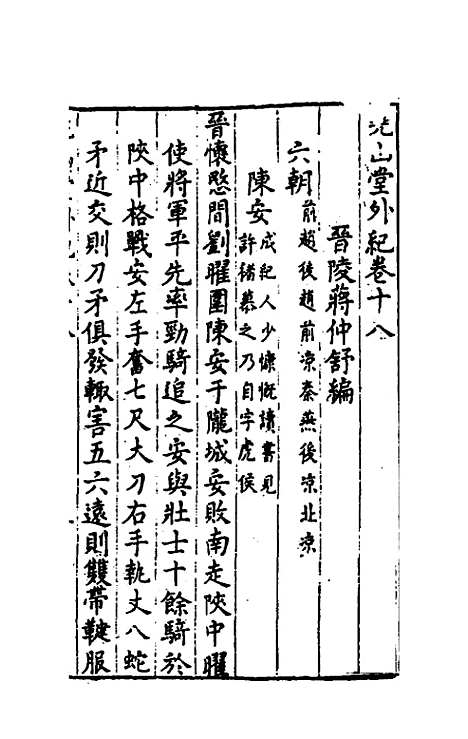 尭山堂外紀卷十八
晉陵蔣仲舒編
六朝前趙後趙前凉秦燕後凉北凉
陳安成紀人少慷慨讀書見
許褚慕之乃自字虎侯
晉懷愍間劉曜圍陳安于隴城安敗南走陝中曜
使將軍平先率勁騎追之安與壯士十餘騎於
陝中格戰安左手奮七尺大刀右手執丈八蛇
矛近交則刀矛俱發輙害五六遠則雙帶鞬服